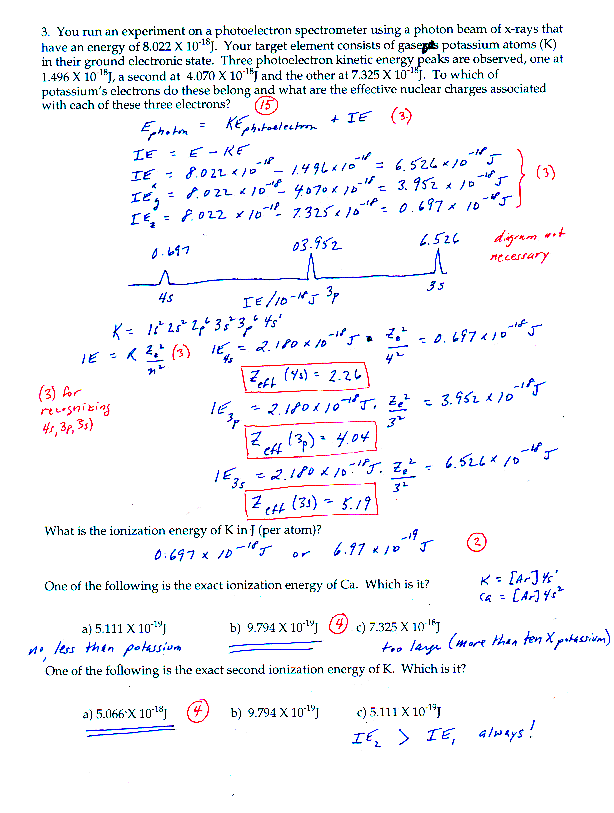 3. You run an experiment on a photoelectron spectrometer using a photon beam of x-rays that
have an energy of 8.022 X 10⁻¹⁸J. Your target element consists of gaseous potassium atoms (K)
in their ground electronic state. Three photoelectron kinetic energy peaks are observed, one at
1.496 X 10⁻¹⁸J, a second at 4.070 X 10⁻¹⁸J and the other at 7.325 X 10⁻¹⁸J. To which of
potassium's electrons do these belong and what are the effective nuclear charges associated
with each of these three electrons? (15)
E photon = KE photoelectron + IE (3)
IE = E - KE
IE = 8.022 x 10⁻¹⁸ - 1.496 x 10⁻¹⁸ = 6.526 x 10⁻¹⁸ J
IE = 8.022 x 10⁻¹⁸ - 4.070 x 10⁻¹⁸ = 3.952 x 10⁻¹⁸ J (3)
IE = 8.022 x 10⁻¹⁸ - 7.325 x 10⁻¹⁸ = 0.697 x 10⁻¹⁸ J
0.697 03.952 6.526 diagram not
necessary
4s IE/10⁻¹⁸ J 3p 3s
K = 1s² 2s² 2p⁶ 3s² 3p⁶ 4s¹
IE = R Ze²/n² (3) IE4s = 2.180 x 10⁻¹⁸ J · Ze²/4² = 0.697 x 10⁻¹⁸ J
Zeff (4s) = 2.26
(3) for
recognizing
4s, 3p, 3s)
IE3p = 2.180 x 10⁻¹⁸ J · Ze²/3² = 3.952 x 10⁻¹⁸ J
Zeff (3p) = 4.04
IE3s = 2.180 x 10⁻¹⁸ J · Ze²/3² = 6.526 x 10⁻¹⁸ J
Zeff (3s) = 5.19
What is the ionization energy of K in J (per atom)?
0.697 x 10⁻¹⁸ J or 6.97 x 10⁻¹⁹ J (2)
One of the following is the exact ionization energy of Ca. Which is it?
K = [Ar] 4s¹
Ca = [Ar] 4s²
a) 5.111 X 10⁻¹⁹J b) 9.794 X 10⁻¹⁹J (4) c) 7.325 X 10⁻¹⁸J
no, less than potassium too large (more than ten X potassium)
One of the following is the exact second ionization energy of K. Which is it?
a) 5.066 X 10⁻¹⁸J (4) b) 9.794 X 10⁻¹⁹J c) 5.111 X 10⁻¹⁹J
IE₂ > IE₁ always!